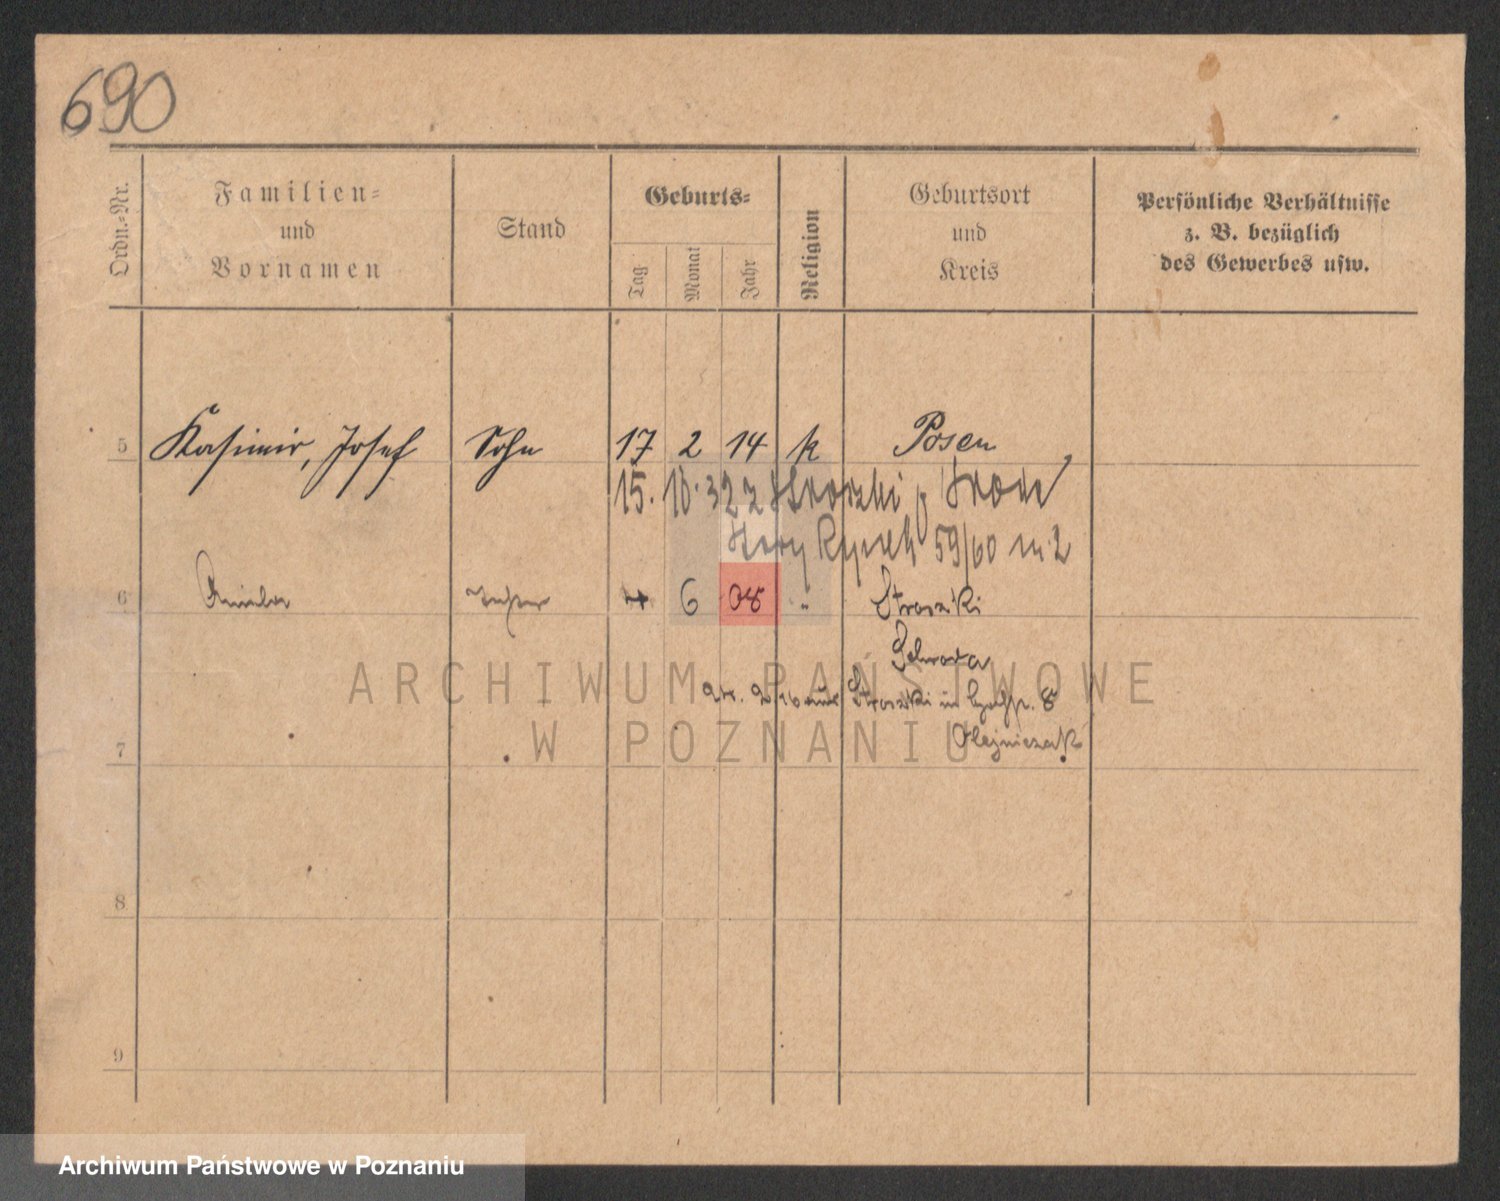 690
Ordn.-Nr.
Familien-
und
Vornamen
Stand
Geburts-
Tag
Monat
Jahr
Religion
Geburtsort
und
Kreis
Persönliche Verhältnisse
z. B. bezüglich
des Gewerbes usw.
5 Kasimir, Josef Sohn 17 2 14 k Posen
15. 10. 32 z Stroszki p. Środa
Stary Rynek 59/60 m 2
6 Tochter 6 08 " Stroszki
Schroda
ARCHIWUM PAŃSTWOWE
Stroszki in 8
7 Olejniczak
W POZNANIU
8
9
Archiwum Państwowe w Poznaniu